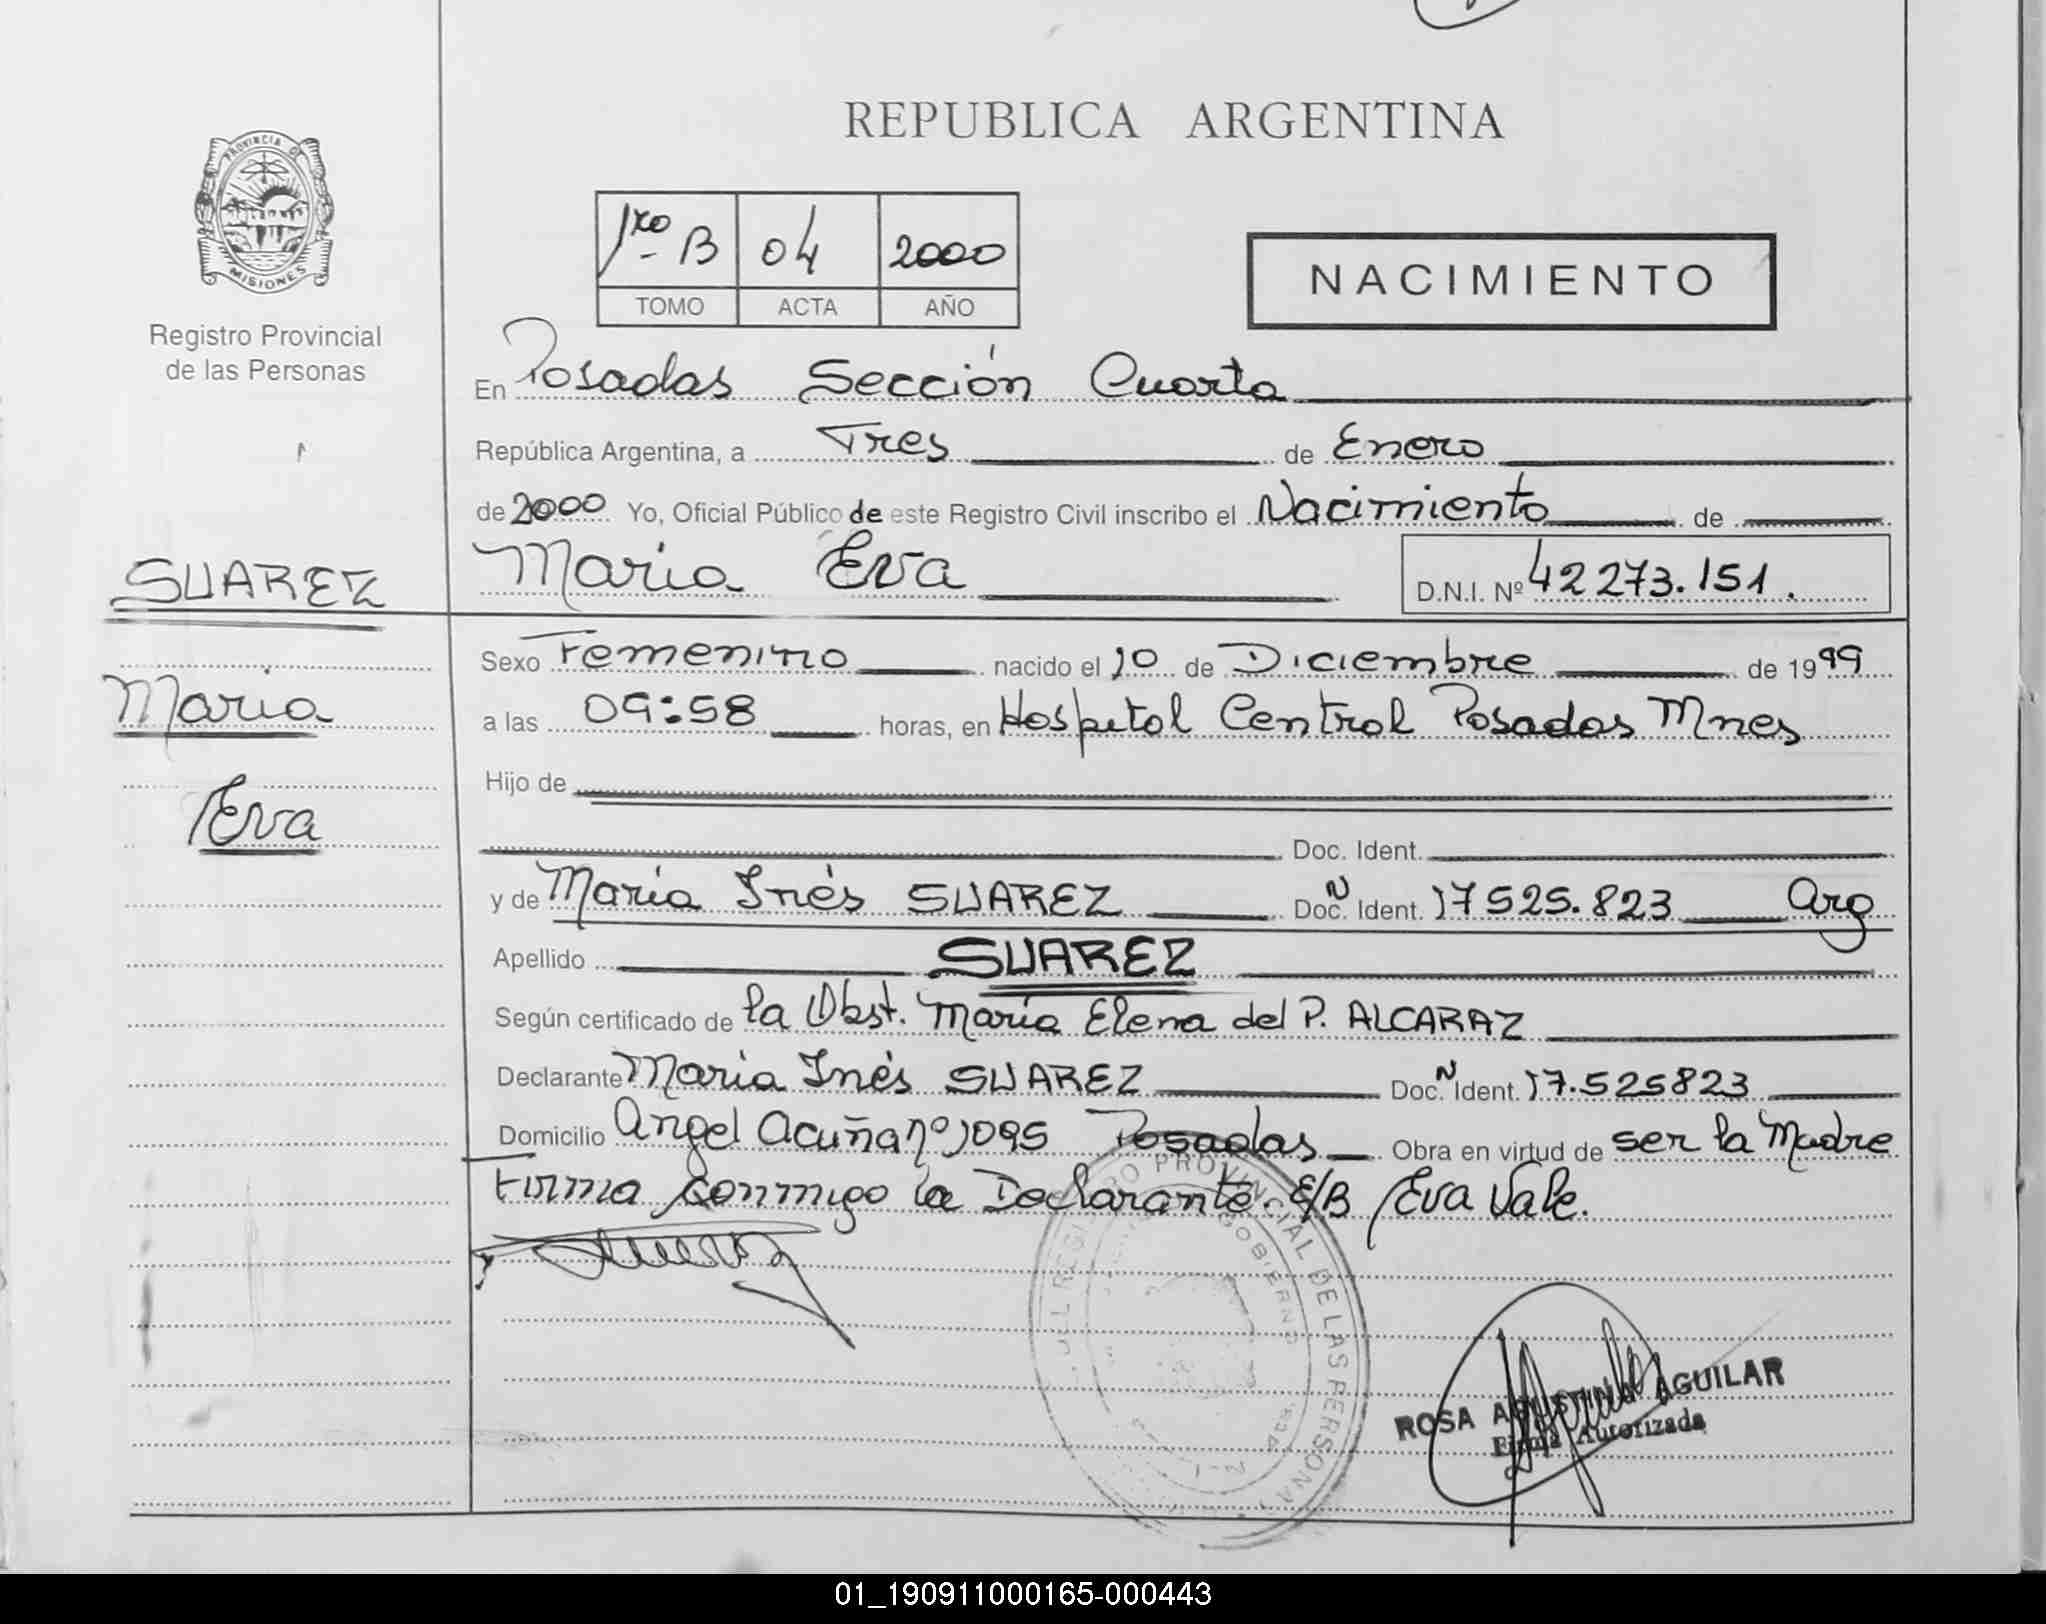 REPUBLICA ARGENTINA
PROVINCIA DE
MISIONES
Registro Provincial
de las Personas
1ro - B 04 2000
TOMO ACTA AÑO
NACIMIENTO
En Posadas Sección Cuarta
República Argentina, a Tres de Enero
de 2000 Yo, Oficial Público de este Registro Civil inscribo el Nacimiento de
Maria Eva D.N.I. Nº 42 273.151.
SUAREZ
Maria
Eva
Sexo Femenino nacido el 10 de Diciembre de 1999
a las 09:58 horas, en Hospital Central Posadas Mnes
Hijo de
Doc. Ident.
y de María Inés SUAREZ Doc. N Ident. 17525.823 Arg
Apellido SUAREZ
Según certificado de la Obst. María Elena del P. ALCARAZ
Declarante María Inés SUAREZ Doc. N Ident. 17.525823
Domicilio Angel Acuña nº 1095 Posadas Obra en virtud de ser la Madre
Firma conmigo la Declarante. E/B Eva Vale.
REGISTRO PROVINCIAL DE LAS PERSONAS
GOBIERNO
ROSA AGUSTINA AGUILAR
Firma Autorizada
01_190911000165-000443